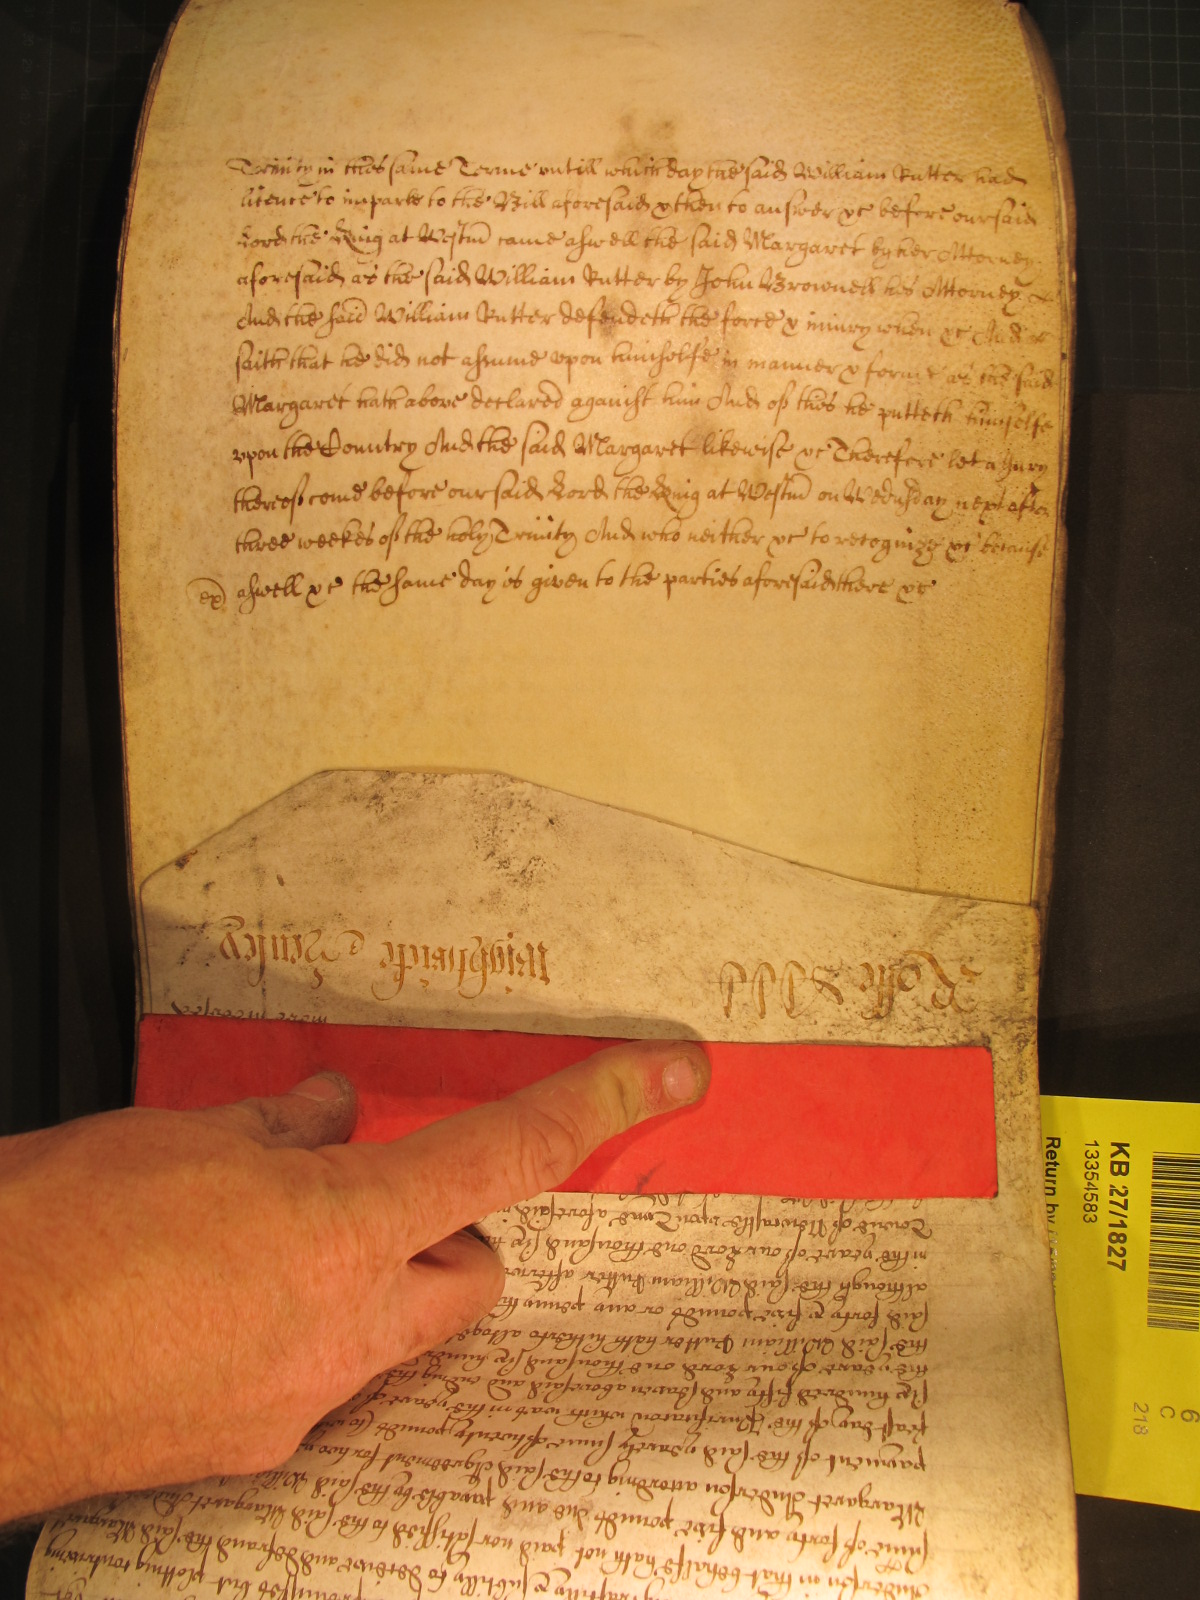 Trinity in this same Terme untill which day the said William Rutter had
licence to imparle to the Bill aforesaid & then to answer &c before our said
Lord the King at Westm came aswell the said Margaret by her Attorney
aforesaid as the said William Rutter by John Brownell his Attorney &
And the said William Rutter defendeth the force & iniury when &c And
saith that he did not assume upon himselfe in manner & forme as the said
Margaret hath above declared against him And of this he putteth himselfe
upon the Country And the said Margaret likewise &c Therefore let a Jury
thereof come before our said Lord the King at Westm on Wednsday next after
three weekes of the holy Trinity And who neither &c to recognize &c because
ex aswell &c the same day is given to the parties aforesaid there &c
Rosse
Wightwick & Henley
Towne of Newcastle upon Tyne aforesaid
in the yeare of our Lord one thousand six
although the said William Rutter afterw
said forty & five pounds or any penny
the said William Rutter hath hitherto altog
the yeare of our Lord one thousand six hund
six hundred fifty and seaven abovesaid and ending the
feast day of the Purification which was in the yeare of
payment of the said yearely summe of twenty pounds
Margaret Anderson according to the said Agreement for
summe of forty and five pounds due and payable by the said Will
Anderson in that behalfe hath not paid nor satisfyed to the said Margaret
craftily & subtilly to deceive and defraud the said Margaret
but plotting
KB 27/1827
13354583
Return by
6
C
218